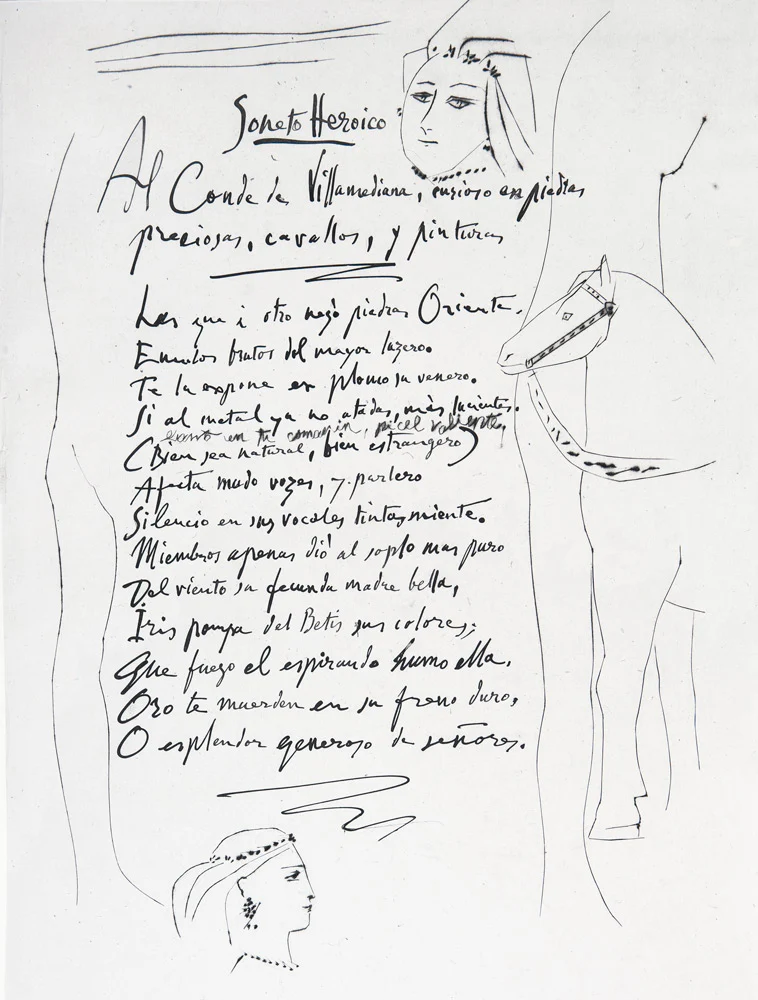 Soneto Heroico
Al Conde de Villamediana, curioso en piedras
preciosas, cavallos, y pinturas
Las que a otro negó piedras Oriente,
Emulos brutos del mayor luzero.
Te la expone en plomo su venero.
Si al metal ya no atadas, más lucientes.
en tu camarin, pincel valiente,
(Bien sea natural, bien estrangero)
Afecta mudo vozes, y parlero
Silencio en sus vocales tintas miente.
Miembros apenas dió al soplo mas puro
Del viento su fecunda madre bella,
Iris pompa del Betis sus colores;
Que fuego el espirando humo ella,
Oro te muerden en su freno duro,
O esplendor generoso de señores.